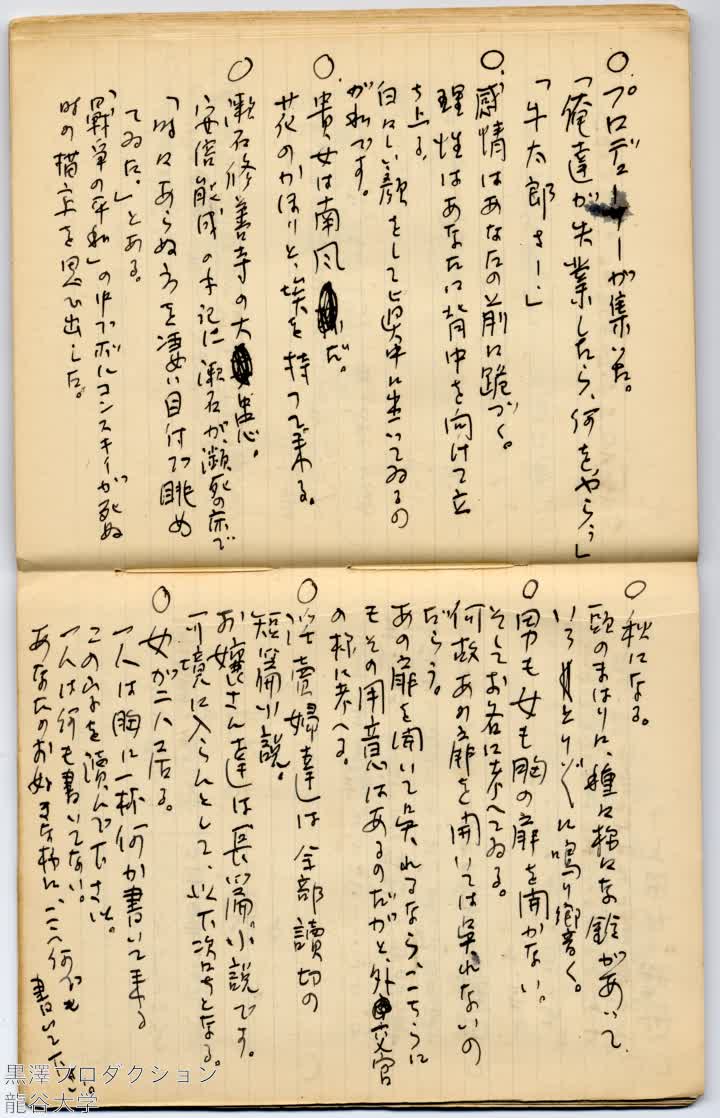 〇プロデューサーが集った。
「俺達が失業したら、何をやらう」
「牛太郎さー」
〇感情はあなたの前に跪づく。
理性はあなたに背中を向けて立
ち上る。
白々しい顔をして真中に坐つてゐるの
が私です。
〇貴女は南風だ。
花のかほりと、埃を持つて来る。
〇漱石修善寺の大患。
安倍能成の手記に漱石が、瀕死の床で
「時にあらぬ方を凄い目付で眺め
てゐた。」とある。
「戦争の平和」の中でボルコンスキイが死ぬ
時の描写を思ひ出した。
〇秋になる。
頭のまはりに、種々様々な鈴があつて、
いろとりどりに鳴り響く。
〇男も女も胸の扉を開かない。
そしてお各に考へてゐる。
何故あの扉を開いては呉れないの
だらう。
あの扉を開いて呉れるなら、こちらに
もその用意はあるのだがと、外交官
の様に考へる。
〇淫売婦達は全部読切の
短篇小説。
お嬢さん達は長篇小説です。
可境に入らんとして、以下次号となる。
〇女が二人居る。
一人は胸に一杯何か書いて来る
この字を読んで下さい。
一人は何も書いてない。
あなたのお好きな様に、ここへ何でも
書いて下さい。
黒澤プロダクション
龍谷大学